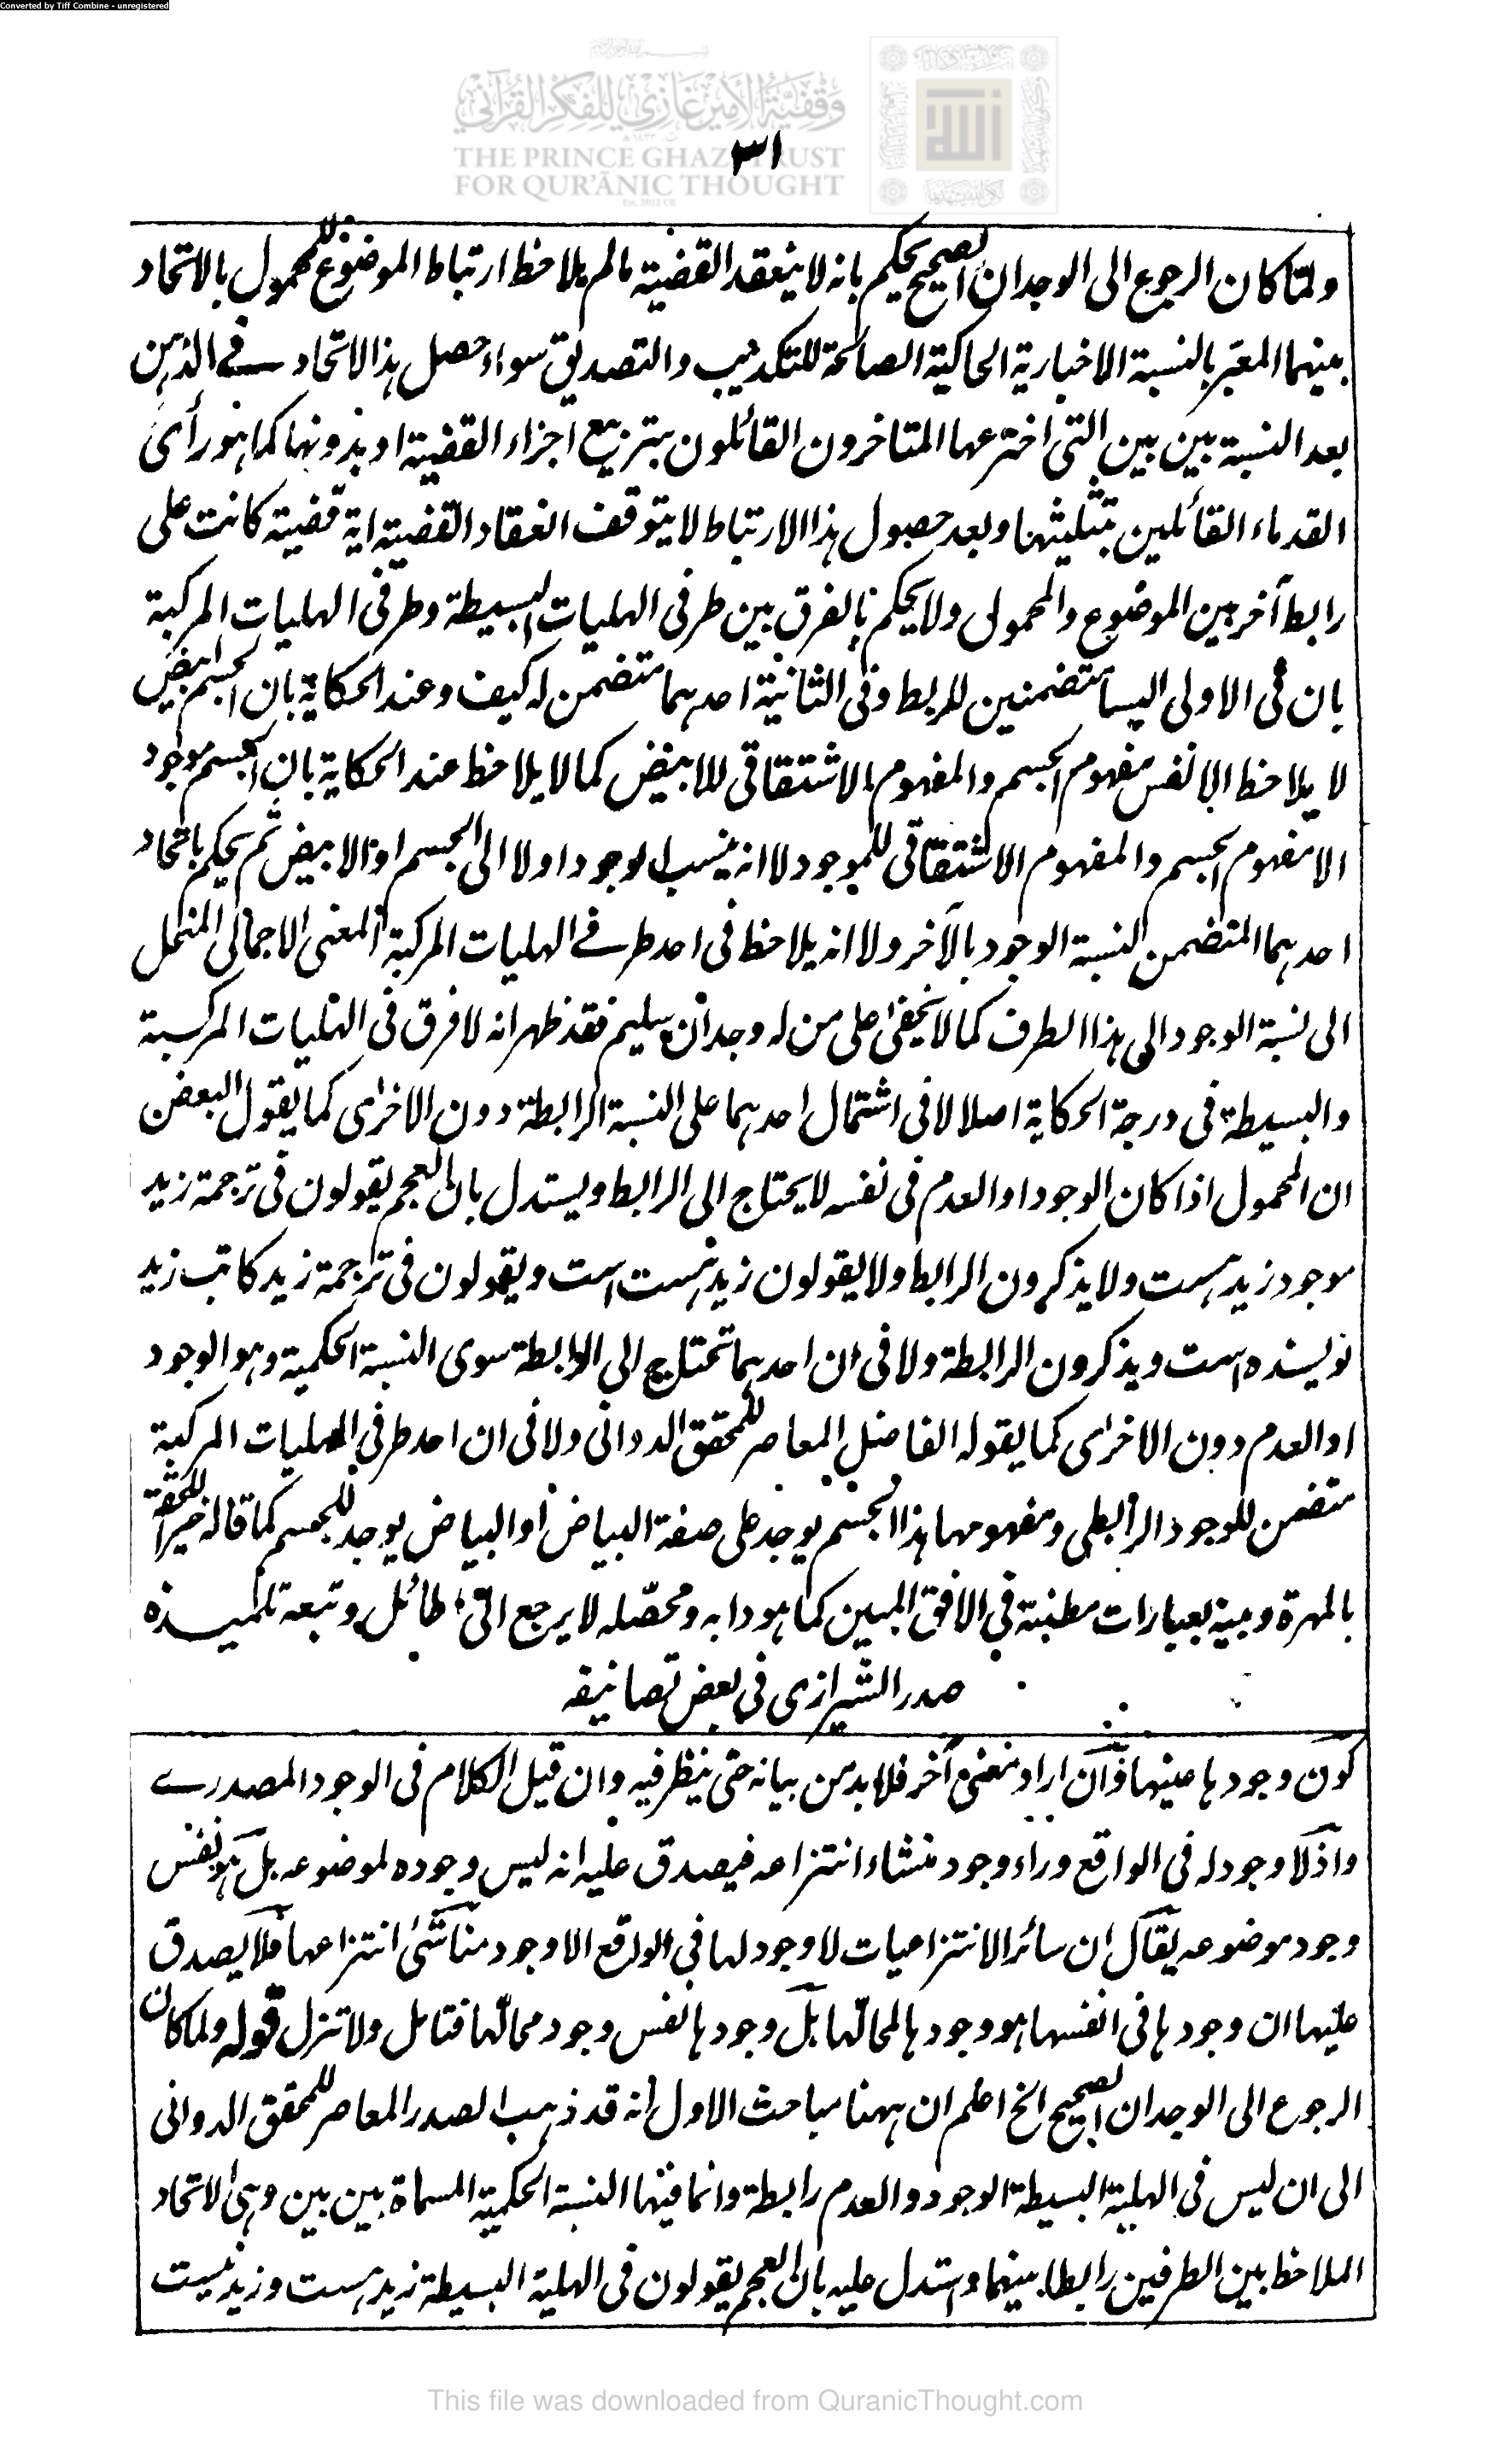 Converted by Tiff Combine - unregistered
وقفية الأمير غازي للفكر القرآني
THE PRINCE GHAZI TRUST
FOR QUR'ĀNIC THOUGHT
٣١
ولما كان الرجوع الى الوجدان الصحيح يحكم بانه لا ينعقد القضية مالم يلاحظ ارتباط الموضوع للمحمول بالاتحاد
بينهما المعبر بالنسبة الاخبارية الحاكية الصالحة للتكذيب والتصديق سواء حصل هذا الاتحاد فى الذهن
بعد النسبة بين بين التى اخترعها المتاخرون القائلون بتربيع اجزاء القضية او بدونها كما هو رأى
القدماء القائلين بتثليثها وبعد حصول هذا الارتباط لا يتوقف انعقاد القضية اية قضية كانت على
رابط آخر بين الموضوع والمحمول ولا يحكم بالفرق بين طرفى الهليات البسيطة وطرفى الهليات المركبة
بان فى الاولى ليسا متضمنين للربط وفى الثانية احدهما متضمن له كيف وعند الحكاية بان الجسم ابيض
لا يلاحظ الا نفس مفهوم الجسم والمفهوم الاشتقاقى للابيض كما لا يلاحظ عند الحكاية بان الجسم موجود
الا مفهوم الجسم والمفهوم الاشتقاقى للموجود لا انه ينسب الوجود اولا الى الجسم او الابيض ثم يحكم باتحاد
احدهما المتضمن لنسبة الوجود بالآخر ولا انه يلاحظ فى احد طرفى الهليات المركبة المعنى الاجمالى المنحل
الى نسبة الوجود الى هذا الطرف كما لا يخفى على من له وجدان سليم فقد ظهر انه لا فرق فى الهليات المركبة
والبسيطة فى درجة الحكاية اصلا لا فى اشتمال احدهما على النسبة الرابطة دون الاخرى كما يقول البعض
ان المحمول اذا كان الوجود او العدم فى نفسه لا يحتاج الى الرابط ويستدل بان العجم يقولون فى ترجمة زيد
موجود زيد هست ولا يذكرون الرابط ولا يقولون زيد هست است ويقولون فى ترجمة زيد كاتب زيد
نويسنده است ويذكرون الرابطة ولا فى ان احدهما تحتاج الى الرابطة سوى النسبة الحكمية وهو الوجود
او العدم دون الاخرى كما يقوله الفاضل المعاصر للمحقق الدوانى ولا فى ان احد طرفى الهليات المركبة
متضمن للوجود الرابطى ومفهومها هذا الجسم يوجد على صفة البياض او البياض يوجد للجسم كما قاله خير اللحقة
بالمهرة وبينه بعبارات مطنبة فى الافق المبين كما هو دابه ومحصله لا يرجع الى طائل وتبعه تلميذه
صدر الشيرازى فى بعض تصانيفه
كون وجودها عينها وان اراد معنى آخر فلا بد من بيانه حتى ينظر فيه وان قيل الكلام فى الوجود المصدرى
واذ لا وجود له فى الواقع وراء وجود منشاء انتزاعه فيصدق عليه انه ليس وجوده لموضوعه بل هو نفس
وجود موضوعه يقال ان سائر الانتزاعيات لا وجود لها فى الواقع الا وجود مناشئ انتزاعها فلا يصدق
عليها ان وجودها فى انفسها هو وجودها لمحالها بل وجودها نفس وجود محالها فتامل ولا تزل قوله ولما كان
الرجوع الى الوجدان الصحيح الخ اعلم ان ههنا مباحث الاول انه قد ذهب الصدر المعاصر للمحقق الدوانى
الى ان ليس فى الهلية البسيطة الوجود والعدم رابطة وانما فيها النسبة الحكمية المسماة بين بين وهى الاتحاد
الملاحظ بين الطرفين رابطا بينهما واستدل عليه بان العجم يقولون فى الهلية البسيطة زيد هست وزيد نيست
This file was downloaded from QuranicThought.com